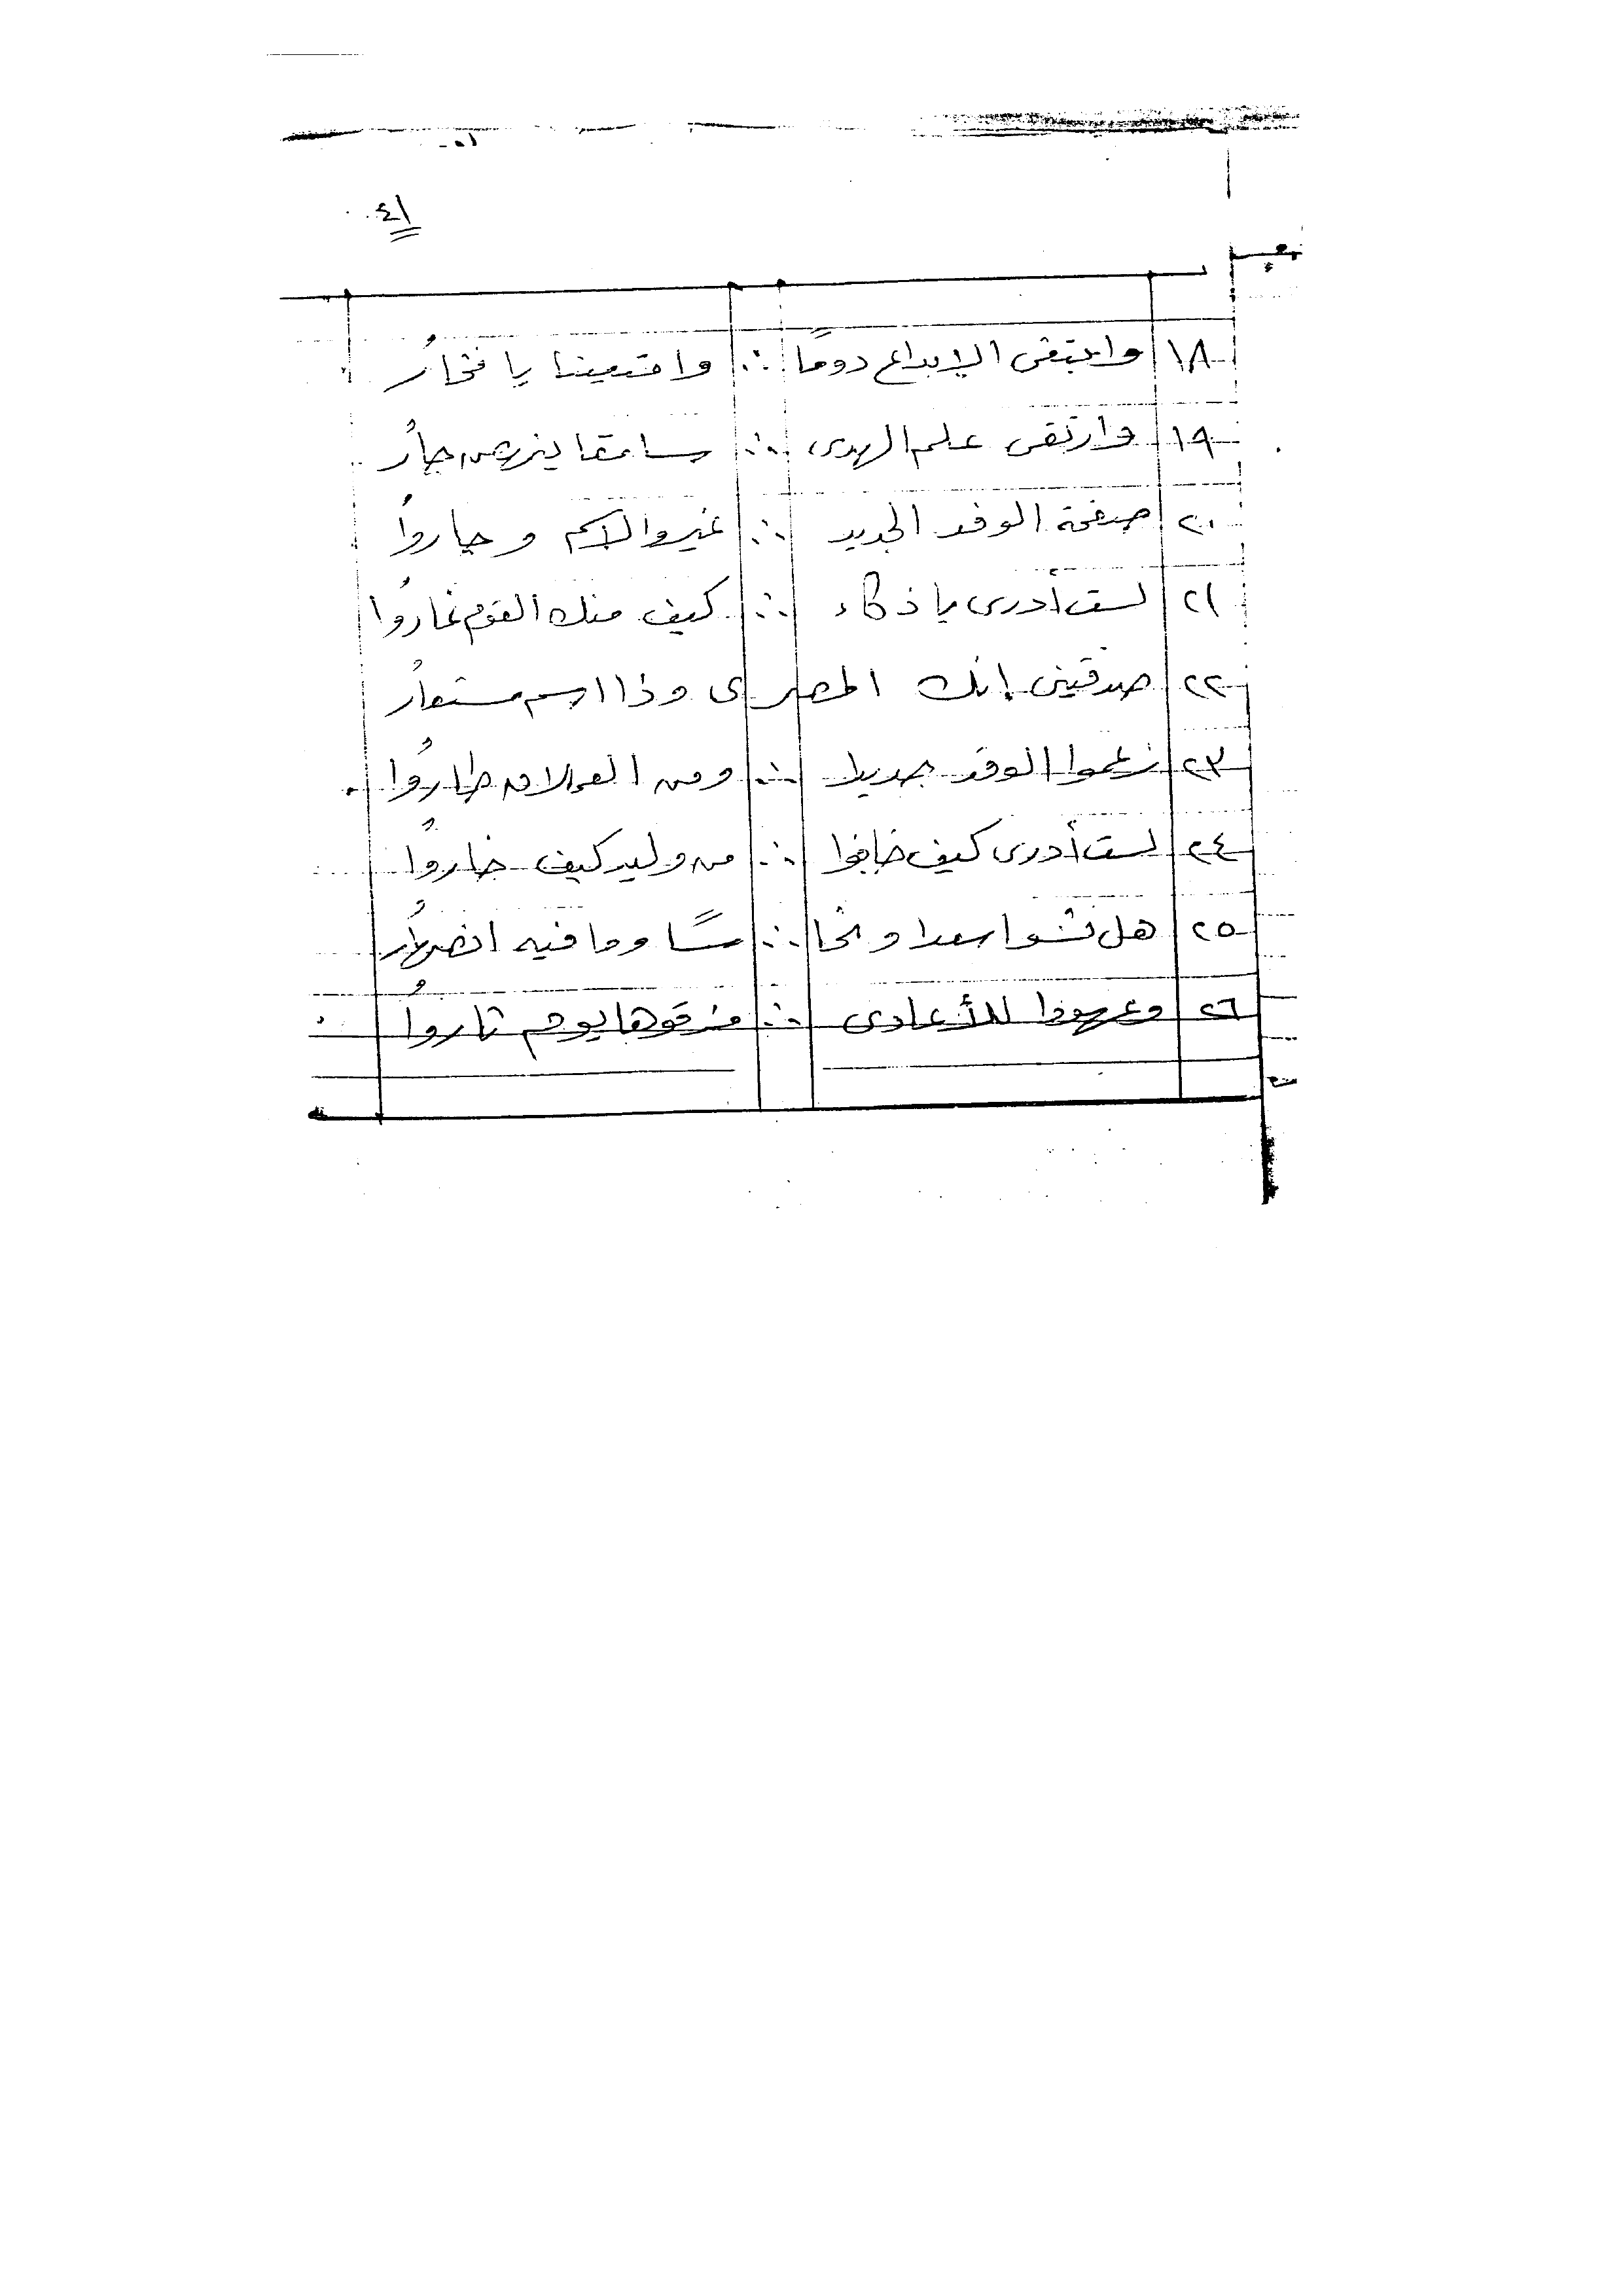 ٤١
١٨ دومًا ∴ يا فخارُ
١٩ وارتقى علم الهدى ∴ سامقا جارُ
٢٠ صيغة الوفد الجديد ∴ غيروا الاسم وحاروُا
٢١ لست أدرى يا ذكاء ∴ كيف منك القوم غاروُا
٢٢ صدقينى إنك المصرى وذا اسم مستعارُ
٢٣ زعموا الوفد جديدا ∴ ومن طاروُا
٢٤ لست أدرى كيف خافوا ∴ من وليد كيف خاروُا
٢٥ هل نسوا سعدا ونحا ∴ سًا وما فيه
٢٦ وعهودا للأعادى ∴ مزقوها يوم ثاروُا